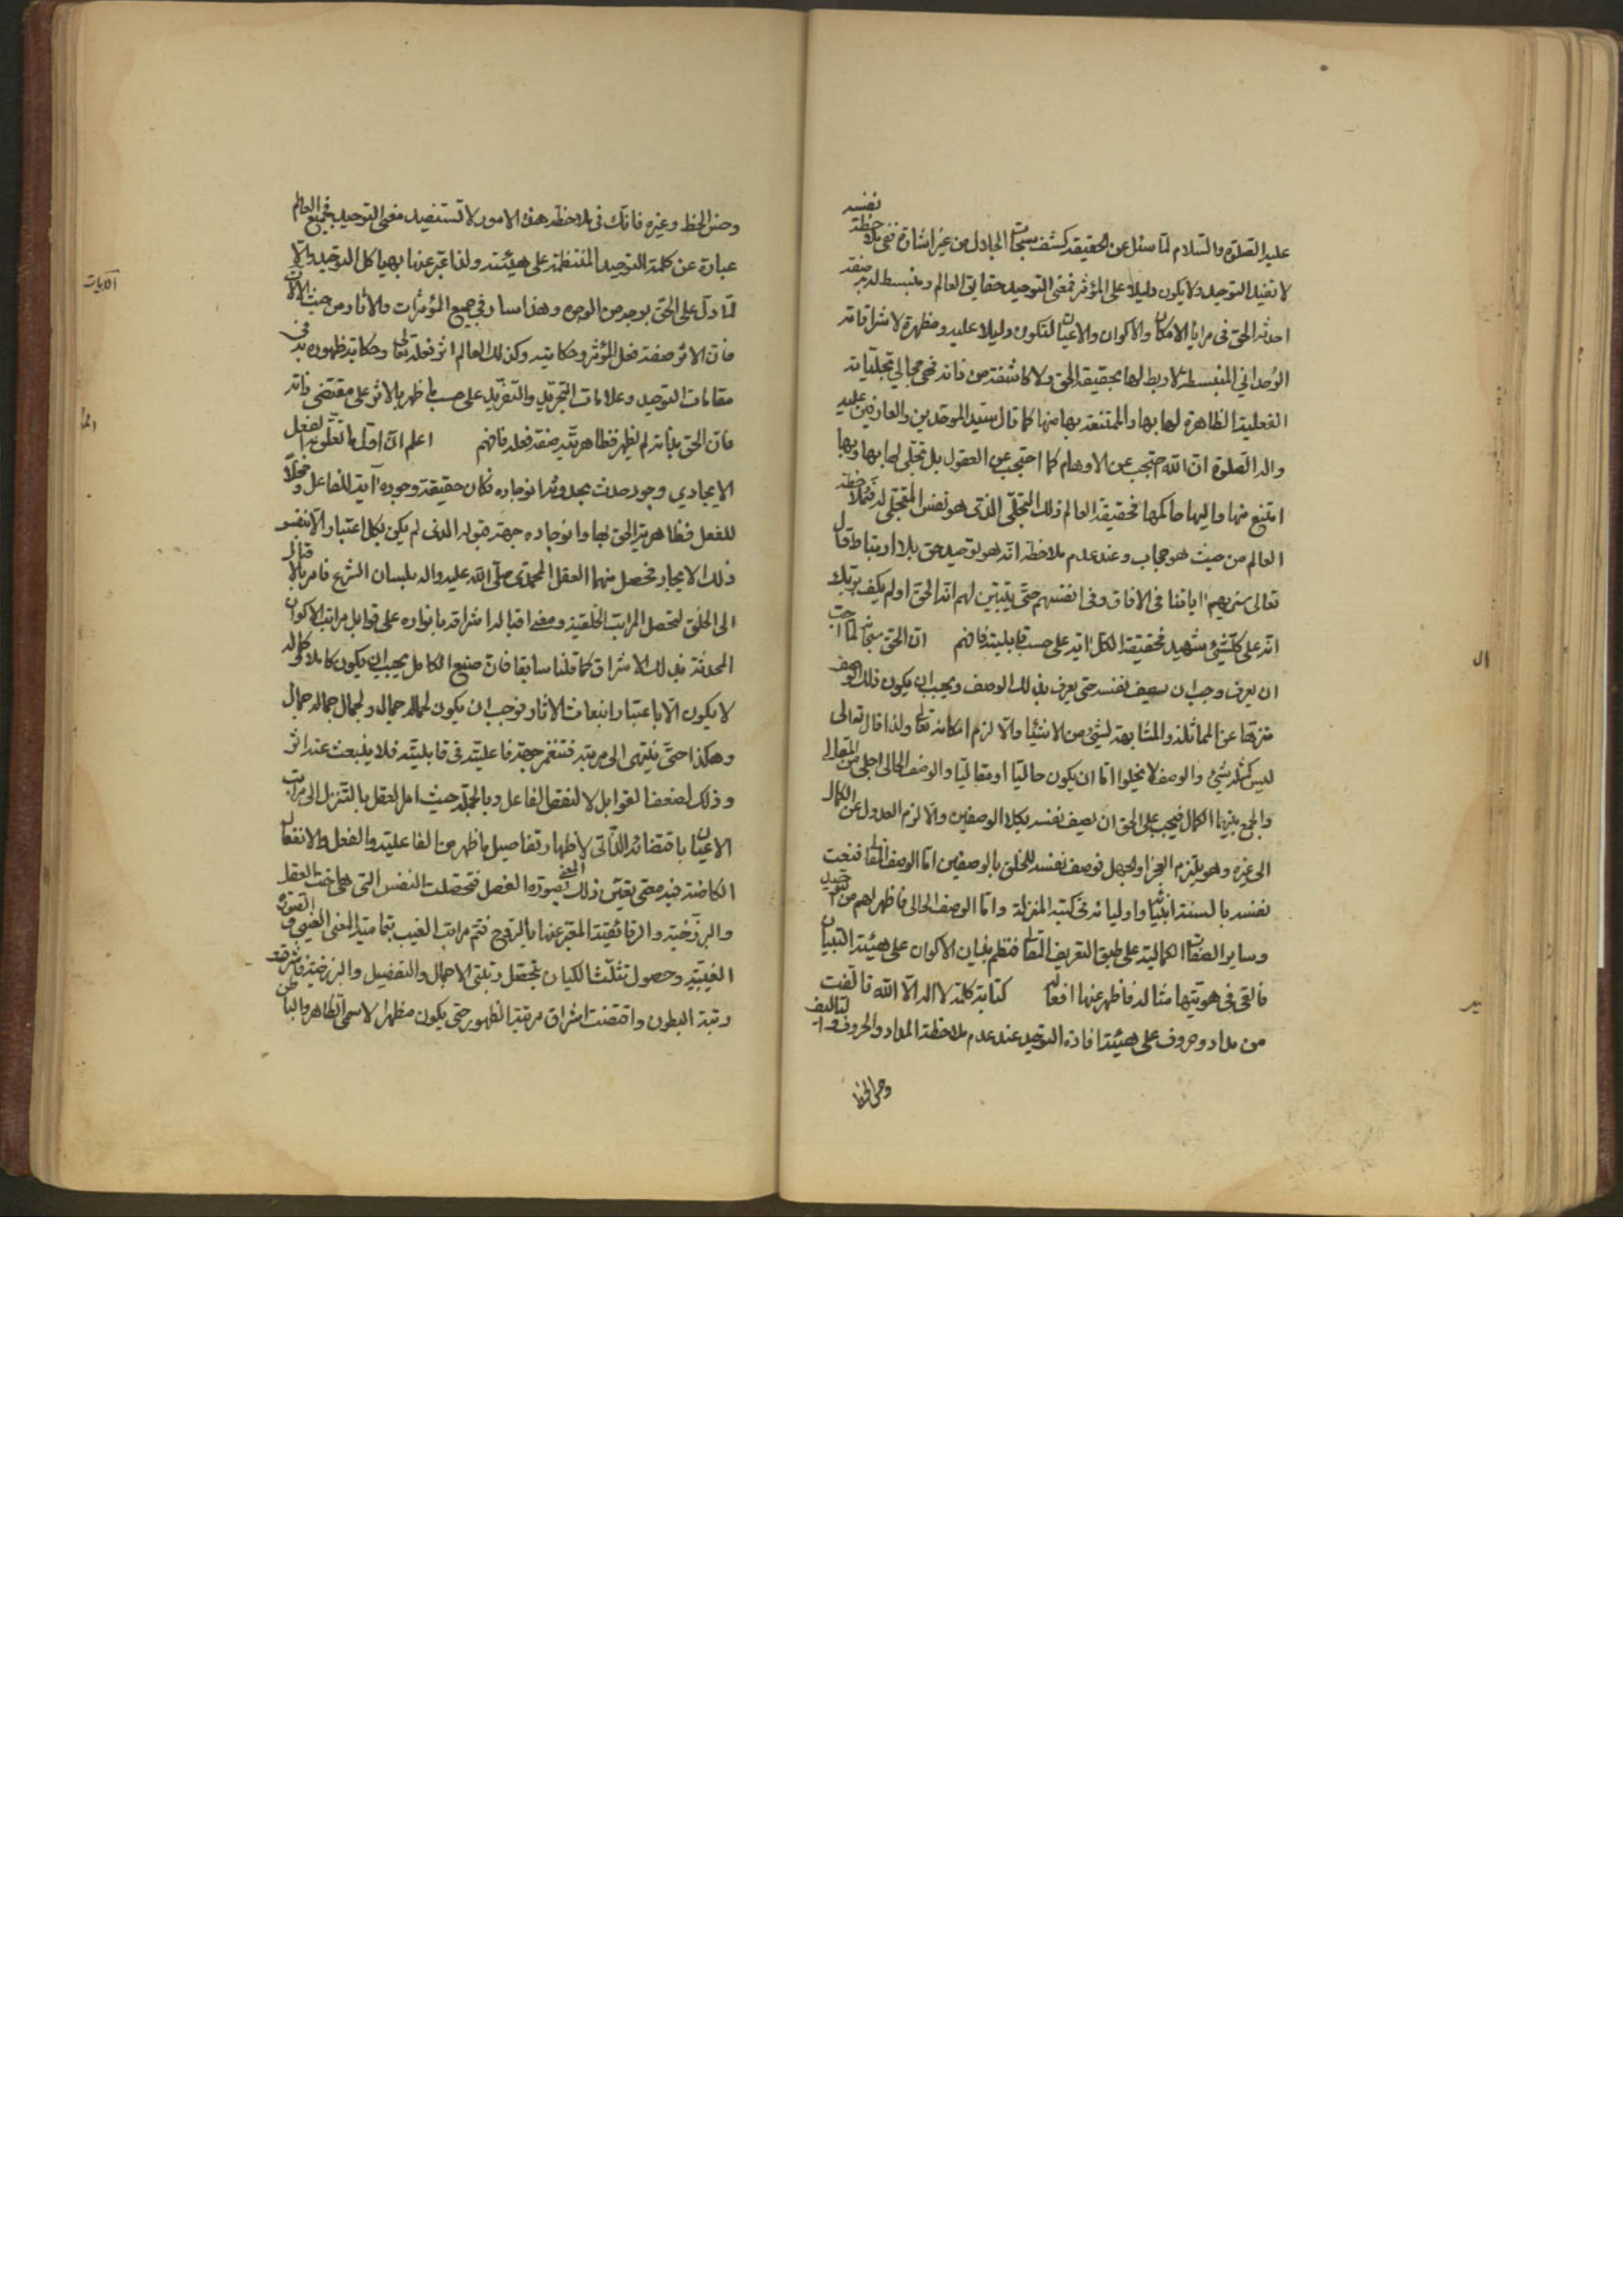 عليه الصلوة والسلام لما سئل عن الحقيقة كشف سبحات الجلال من غير اشارة ففي ملاحظة نفسه
لا تفيد التوحيد ولا يكون دليلا على المؤثر فمعنى التوحيد حقايق العالم ومنبسط لديه صفة
احدية الحق في مرايا الامكان والاكوان والاعيان لتكون دليلا عليه ومظهرة لاشراقاته
الوحداني المنبسطة لا ربط لها بحقيقة الحق ولا كاشفة من ذاته فهي مجالي تجلياته
الفعلية الظاهرة لها بها والممتنعة بها منها كما قال سيد الموحدين والعارفين عليه
واله الصلوة ان الله احتجب عن الاوهام كما احتجب عن العقول بل تجلى لها بها وبها
امتنع منها واليها حاكمها فحقيقة العالم ذلك التجلي الذي هو نفس المتجلى له فملاحظة
العالم من حيث هو حجاب وعند عدم ملاحظة انه هو توحيد حق بلا ارتباط قال
تعالى سنريهم اياتنا في الافاق وفي انفسهم حتى يتبين لهم انه الحق اولم يكف بربك
انه على كل شيء شهيد فحقيقة الكل اية على حسب قابليته فافهم ان الحق سبحانه لما احب
ان يعرف وجب ان يصف نفسه حتى يعرف بذلك الوصف ويجب ان يكون ذلك الوصف
منزها عن المماثلة والمشابهة لشيء من الاشياء والا لزم امكانه تعالى ولذا قال تعالى
ليس كمثله شيء والوصف لا يخلوا اما ان يكون حاليا او مقاليا والوصف الحالي اجلى من المقالي
والجمع بينهما الكمال فيجب على الحق ان يصف نفسه بكلا الوصفين والا لزم العدول عن الكمال
الى غيره وهو يلتزم العجز او الجهل فوصف نفسه للخلق بالوصفين اما الوصف المقالي فنعت
نفسه بالسنة انبيائه واوليائه في كتبه المنزلة واما الوصف الحالي فاظهر لهم من توحيد
وساير الصفات الكمالية على طبق التعريف المقالي فنظم بنيان الاكوان على هيئة التبيان
فالقى في هويتها مثاله فاظهر عنها افعاله كتابة كلمة لا اله الا الله تالفت
من مداد وحروف على هيئة افادة التوحيد عند عدم ملاحظة المداد والحروف والتاليف
وحسن الخط
وحسن الخط وغيره فانك في ملاحظة هذه الامور لا تستفيد معنى التوحيد فجميع العالم
عبارة عن كلمة التوحيد المنتظمة على هيئته ولذا عبر عنها بهياكل التوحيد والا
لما دل على الحق بوجه من الوجوه وهذا سار في جميع المؤثرات والاثار ومن حيث الاثار
فان الاثر صفة فعل المؤثر وحكايته وكذلك العالم اثر فعله تعالى وحكاية ظهوره به في
مقامات التوحيد وعلامات التجريد والتفريد على حسب ما ظهر بالاثر على مقتضى ذاته
فان الحق بذاته لم يظهر فظاهريته صفة فعله فافهم اعلم ان اول ما تعلق به الفعل
الايجادي وجود حدث بحدوثه انوجاده فكان حقيقة وجوده اية للفاعل ومحلا
للفعل فظاهرية الحق بها وانوجاده جهة قبوله الذي لم يكن بكل اعتبار الا بنفس
ذلك الايجاد فحصل منهما العقل المحمدي صلى الله عليه واله بلسان الشرع فامر بالاقبال
الى الخلق لتحصل المراتب الخلقية ومعنى اقباله اشراقه بانواره على قوابل مراتب الاكوان
المحدثة بذلك الاشراق كما قلنا سابقا فان صنع الكامل يجب ان يكون كاملا وكماله
لا يكون الا باعتبار انبعاث الاثار فوجب ان يكون لجماله جمال ولجمال جماله جمال
وهكذا حتى ينتهى الى مرتبة فتنغمر جهة فاعليته في قابليته فلا ينبعث عنه اثر
وذلك لضعف القوابل لا لنقص الفاعل وبالجملة حيث امر العقل بالتنزل الى مراتب
الاعيان باقتضائه الذاتي لاظهار تفاصيل ما ظهر من الفاعلية والفعل والانفعال
الكامنة فيه معنى تعين ذلك المعنى بصورة الفصل فتحصلت النفس التي هي اخت العقل
والبرزخية والرقائقية المعبر عنها بالروح فتم مراتب الغيب بتمامية المعنى الغيبي والصورة
الغيبية وحصول تثلث الكيان بتحقق رتبتي الاجمال والتفصيل والبرزخية فاشرقت
رتبة البطون واقتضت اشراق مرتبة الظهور حتى يكون مظهرا لاسمي الظاهر والباطن